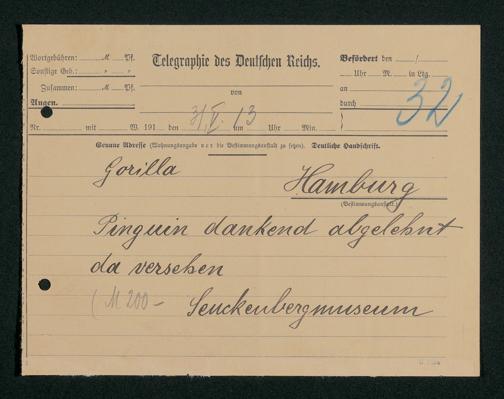 Wortgebühren: M Pf.
Sonstige Geb.: " "
Zusammen: M Pf.
Angen.
Telegraphie des Deutschen Reichs.
von
Befördert den /
Uhr M. in Ltg.
an
durch
32
31/V. 13
Nr. mit W. 191 den um Uhr Min.
Genaue Adresse (Wohnungsangabe nur die Bestimmungsanstalt zu setzen). Deutliche Handschrift.
Gorilla Hamburg
(Bestimmungsanstalt.)
Pinguin dankend abgelehnt
da versehen
(M 200 – Senckenbergmuseum